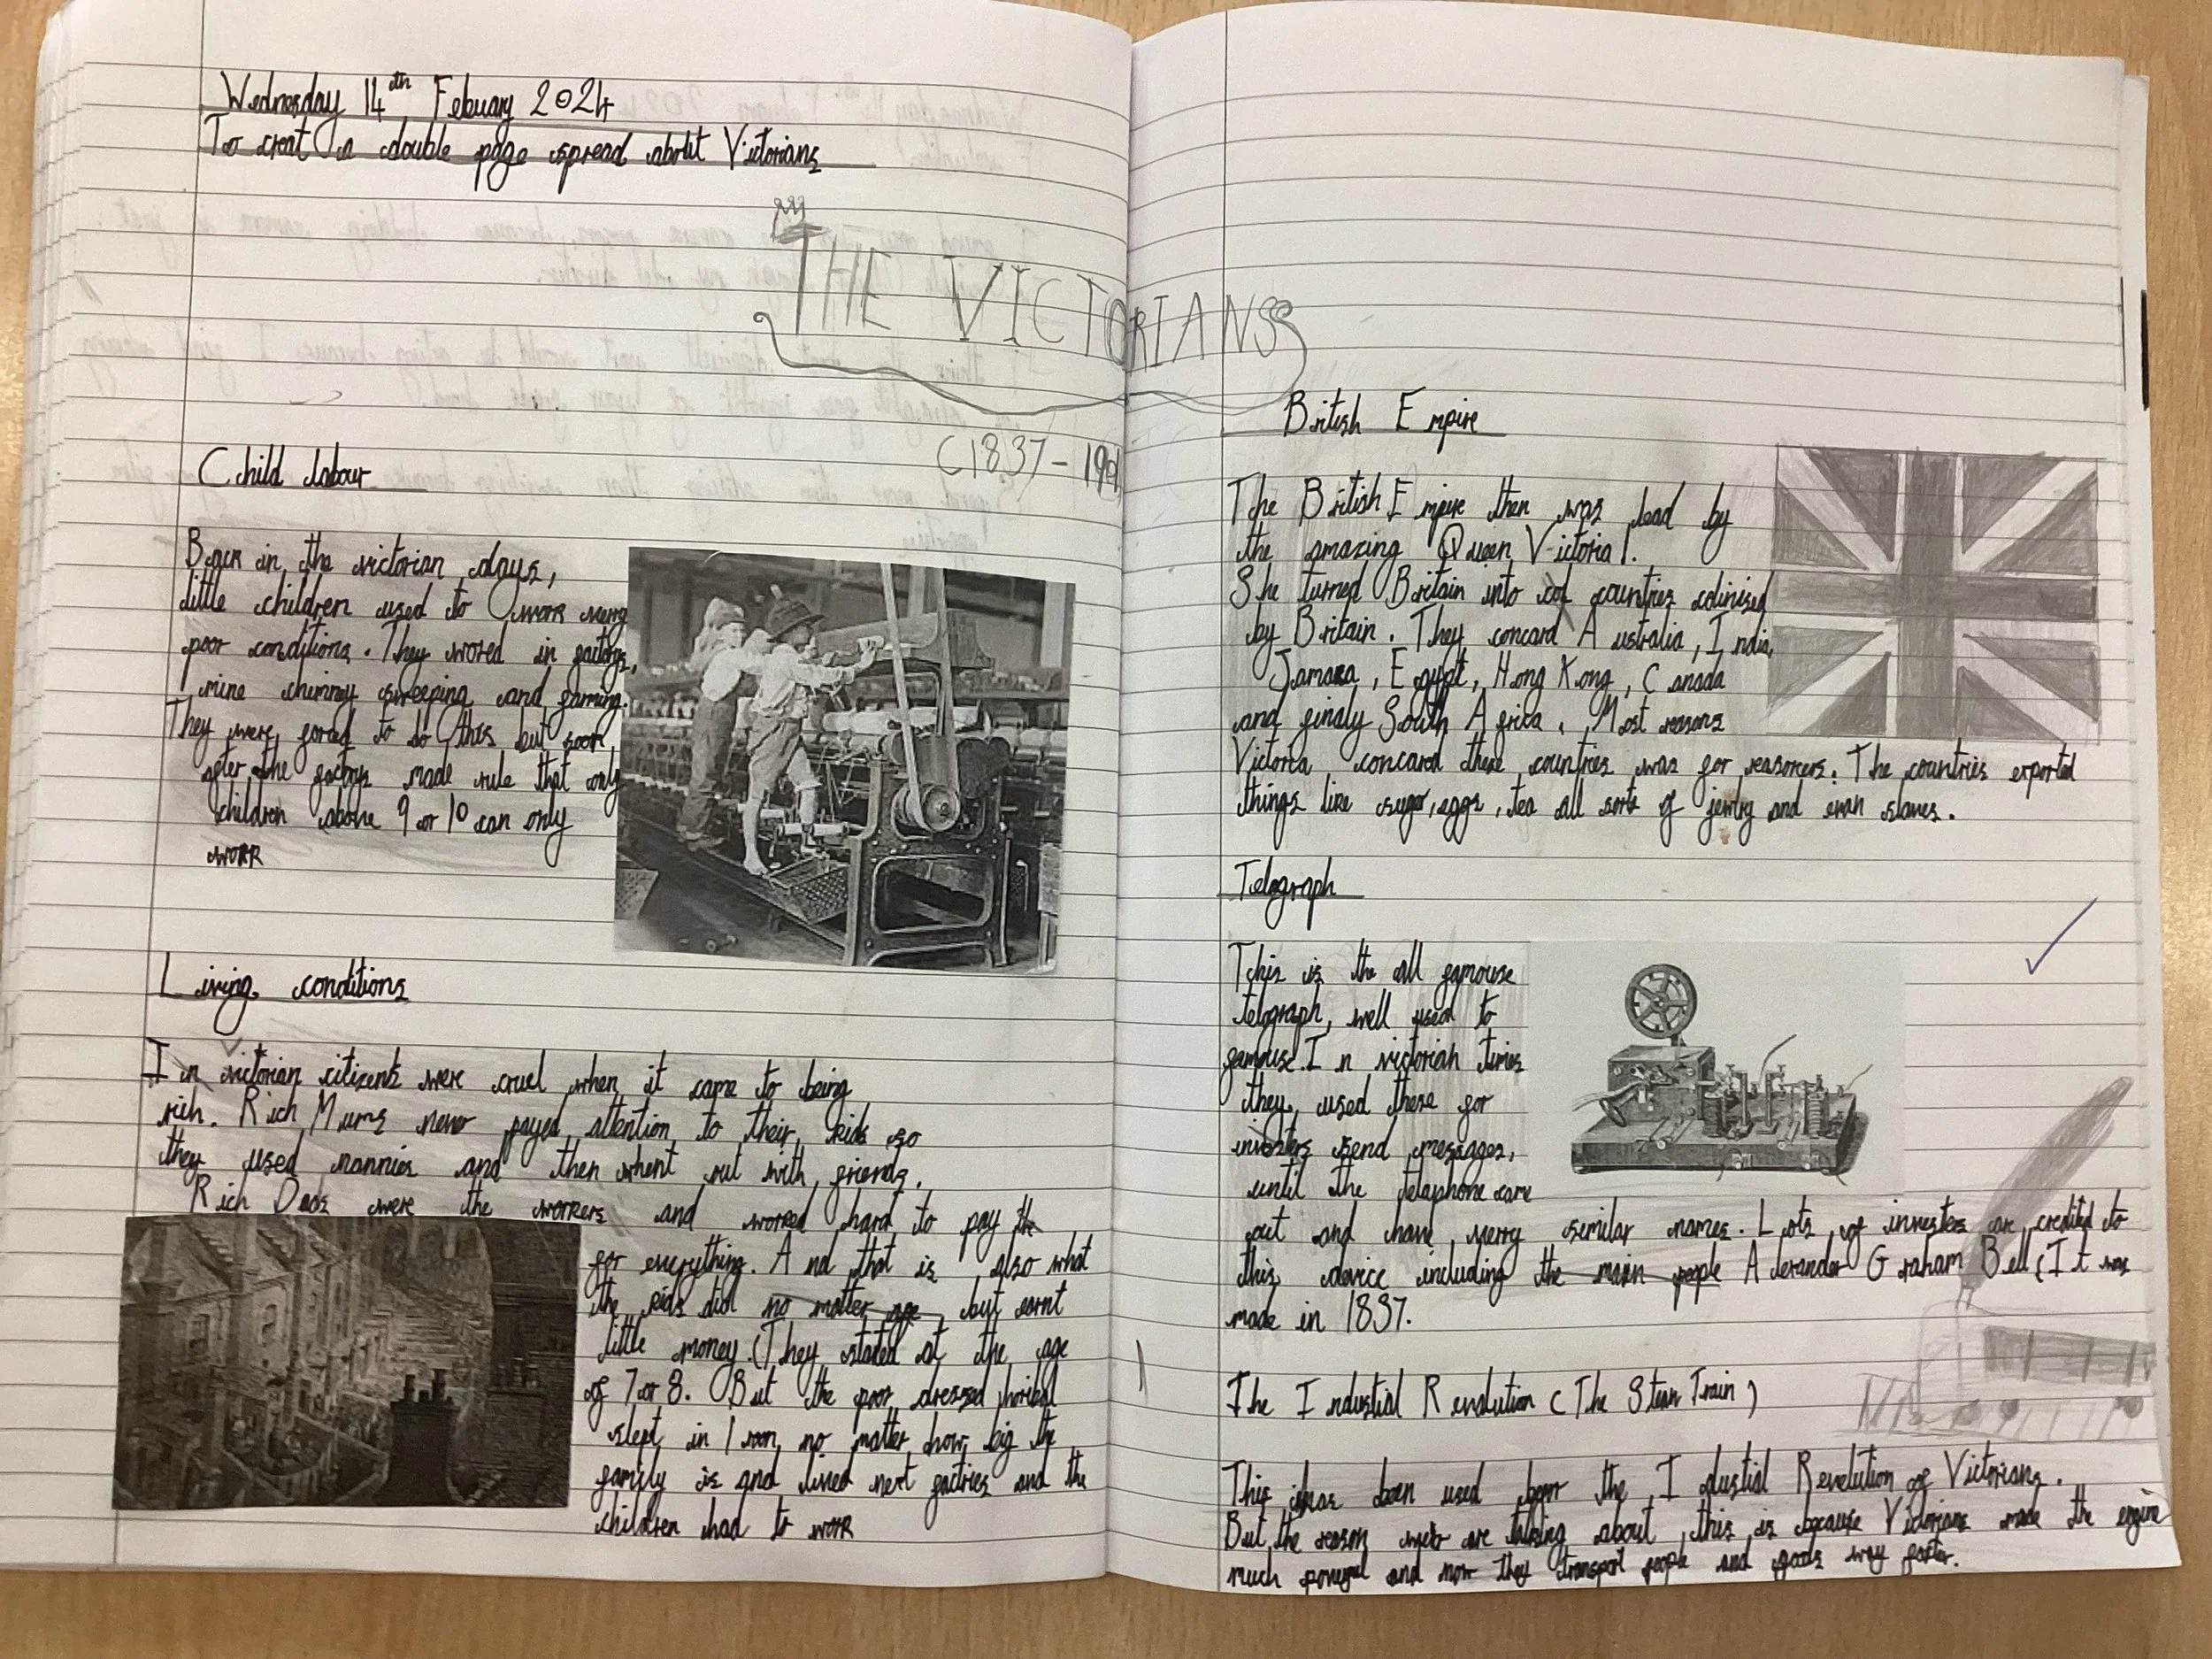 Wednesday 14th Febuary 2024
To creat a double page spread about Victorians
THE VICTORIANS
(1837-1901
Child labour
Back in the victorian days,
little children used to work verry
poor conditions. They wored in factorys,
mine chimney sweeping and farming.
They were forced to do this but soon
after the factorys made rule that only
children above 9 or 10 can only
work
Living conditions
In victorian citizens were cruel when it came to being
rich. Rich Mums never payed attention to their kids so
they used nannies and then whent out with friends.
Rich Dads were the workers and worked hard to pay the
for everything. And that is also what
the kids did no matter age, but earnt
little money. (They stated at the age
of 7 or 8. But the poor dressed horibal
slept in 1 room no matter how big the
family is and lived next factries and the
children had to work
British Empire
The British Empire then was lead by
the amazing Queen Victoria 1.
She turned Britain into countries colinised
by Britain. They concard Australia, India,
Jamaca, Egypt, Hong Kong, Canada
and finaly South Africa. Most reasons
Victoria concared these countries was for reasorces. The countries exported
things like sugar, eggs, tea all sorts of jewlry and even slaves.
Telegraph
This is the all famouse
telegraph, well used to
famouse. In victorian times
they used these for
investers send messages,
until the telaphone came
out and have verry similar names. Lots of investers are credited to
this device including the main people Alexander Graham Bell (It was
made in 1837.
The Industial Revolution (The Steam Train)
This has been used before the Idustial Revelution of Victorians.
But the reason were are talking about this is because Victorians made the engine
much powerful and now they transport people and goods way faster.